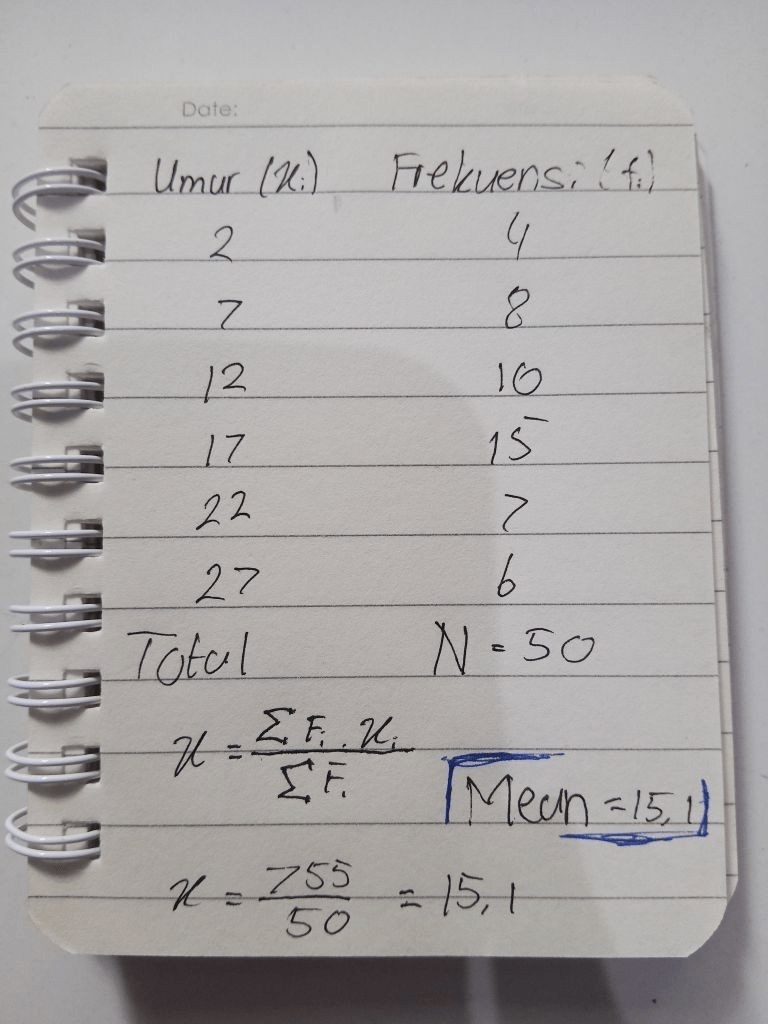 Date:
Umur (xi) Frekuensi (fi)
2 4
7 8
12 10
17 15
22 7
27 6
Total N = 50
x = ΣFi . xi / ΣFi
Mean = 15,1
x = 755 / 50 = 15,1